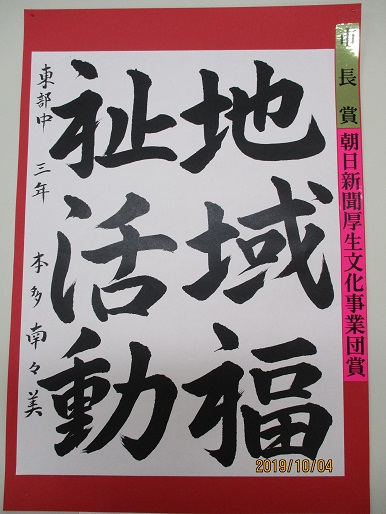 市長賞
朝日新聞厚生文化事業団賞
地域福
祉活動
東部中 三年 本多南々美
2019/10/04